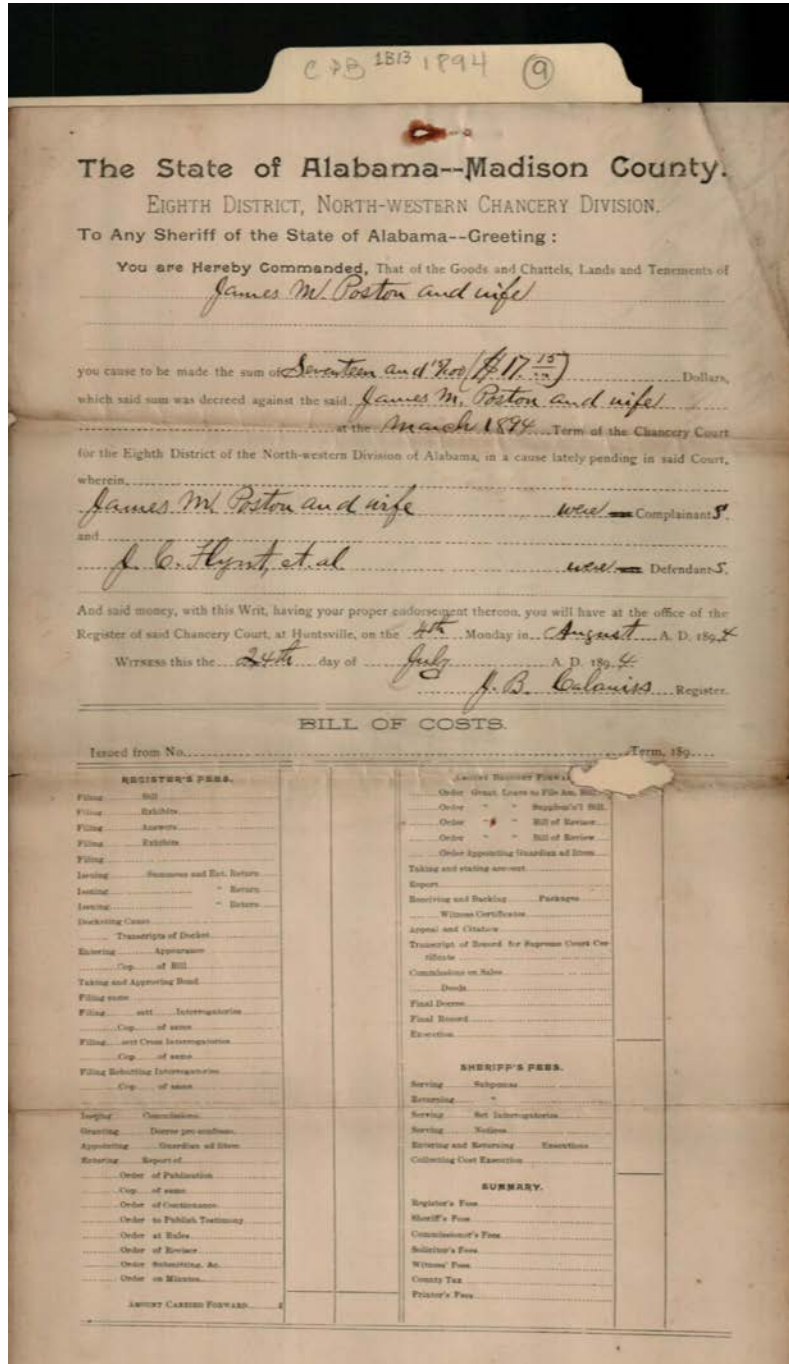 CDB 1813 1894 9
The State of Alabama--Madison County.
EIGHTH DISTRICT, NORTH-WESTERN CHANCERY DIVISION.
To Any Sheriff of the State of Alabama--Greeting:
You are Hereby Commanded, That of the Goods and Chattels, Lands and Tenements of
James M. Poston and wife
you cause to be made the sum of Seventeen and 15/100 ($17 15/100) Dollars,
which said sum was decreed against the said James M. Poston and wife
at the March 1894 Term of the Chancery Court
for the Eighth District of the North-western Division of Alabama, in a cause lately pending in said Court,
wherein,
James M. Poston and wife were Complainants.
and
J. C. Flynt, et. al were Defendants.
And said money, with this Writ, having your proper endorsement thereon, you will have at the office of the
Register of said Chancery Court, at Huntsville, on the 4th Monday in August A. D. 1894
WITNESS this the 24th day of July A. D. 1894.
J. B. Register.
BILL OF COSTS.
Issued from No. Term, 189
REGISTER'S FEES.
Filing Bill
Filing Exhibits
Filing Answers
Filing Exhibits
Filing
Issuing Summons and Ent. Return
Issuing " Return
Issuing " Return
Docketing Cause
Transcripts of Docket
Entering Appearance
Cop of Bill
Taking and Approving Bond
Filing same
Filing sett Interrogatories
Cop of same
Filing sett Cross Interrogatories
Cop of same
Filing Rebutting Interrogatories
Cop of same
Issuing Commissions
Granting Decree pro confesso
Appointing Guardian ad litem
Entering Report of
Order of Publication
Cop of same
Order of Continuance
Order to Publish Testimony
Order at Rules
Order of Revisor
Order Submitting, &c.
Order on Minutes
AMOUNT CARRIED FORWARD $
AMOUNT BROUGHT FORWARD
Order Grant. Leave to File Am. Bill
Order " " Supplem'l Bill
Order " " Bill of Review
Order " " Bill of Review
Order Appointing Guardian ad litem
Taking and stating account
Report
Receiving and Backing Packages
Witness Certificates
Appeal and Citation
Transcript of Record for Supreme Court Cer-
tificate
Commissions on Sales
Deeds
Final Decree
Final Record
Execution
SHERIFF'S FEES.
Serving Subpœnas
Returning "
Serving Set Interrogatories
Serving Notices
Entering and Returning Executions
Collecting Cost Execution
SUMMARY.
Register's Fees
Sheriff's Fees
Commissioner's Fees
Solicitor's Fees
Witness' Fees
County Tax
Printer's Fees